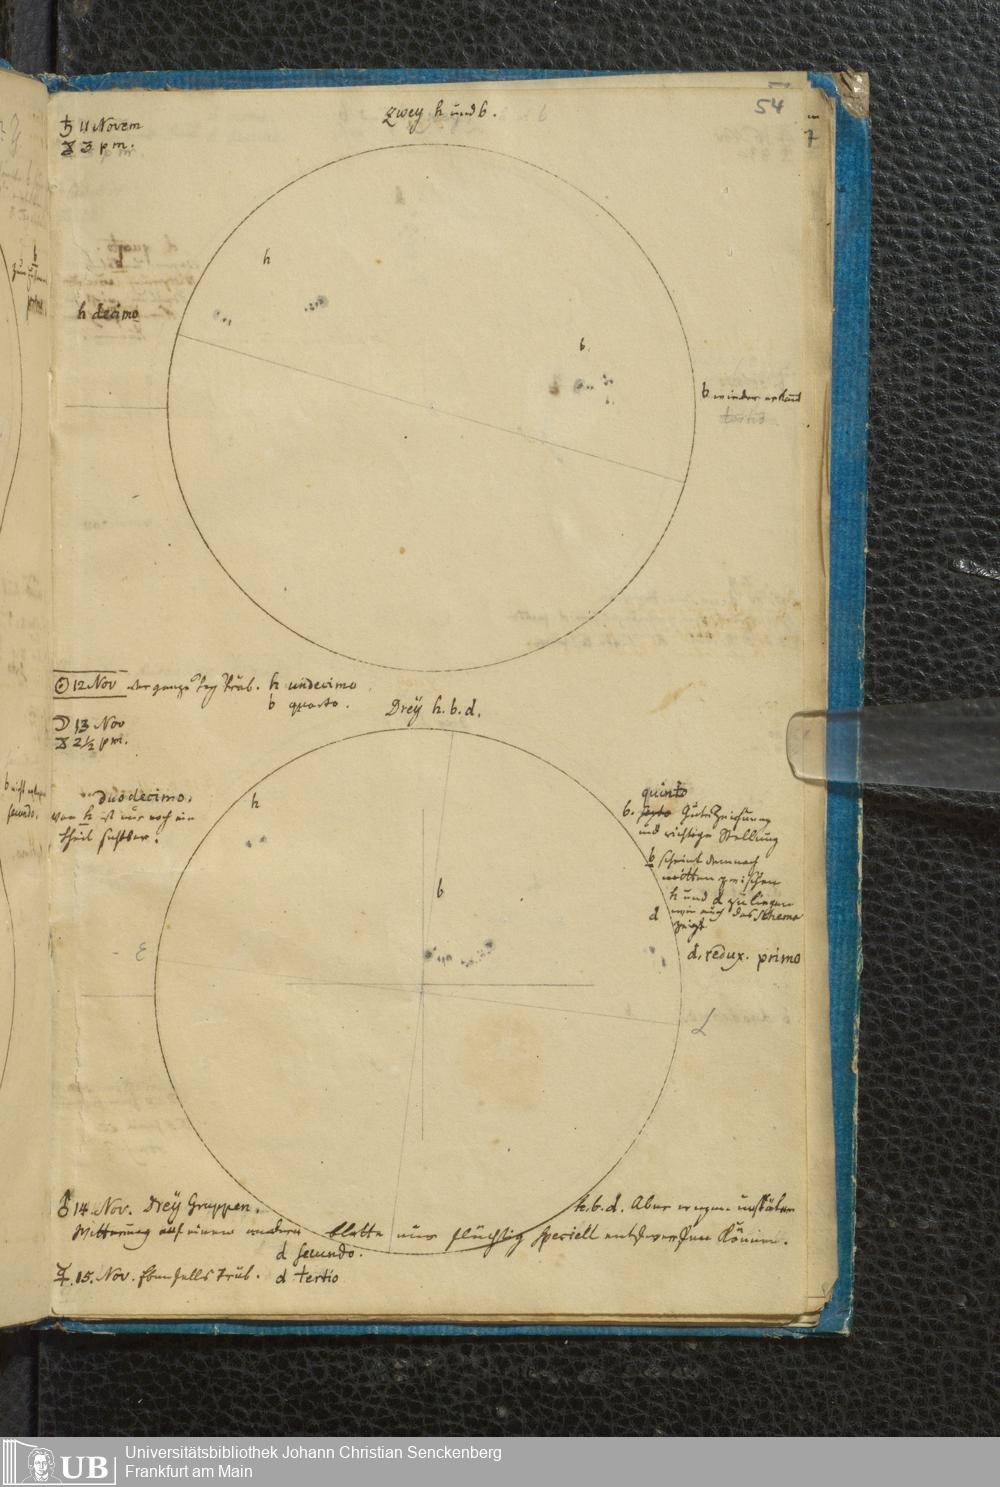 54
7
♄ 11 Novem
☿ 3 p m.
Zwey h und b.
h
h decimo
b.
b wieder erkant
tertio
☉ 12 Nov der ganze Tag trüb. h undecimo
b quarto.
☽ 13 Nov
☿ 2 1/2 p m.
Drey h. b. d.
duodecimo.
von h ist nur noch ein
theil sichtbar.
h
b
quinto
b. Gute Zeichnung
und richtige Stellung
b scheint demnach
mitten zwischen
h und d zu liegen
wie auch das Schema
zeigt
d
d, redux. primo
♂ 14. Nov. Drey Gruppen.
h. b. d. Aber wegen
Witterung auf einem andern blatte nur flüchtig speciell entwerfen können.
d secundo.
☿. 15. Nov. Ebenfalls trüb. d tertio
UB
Universitätsbibliothek Johann Christian Senckenberg
Frankfurt am Main